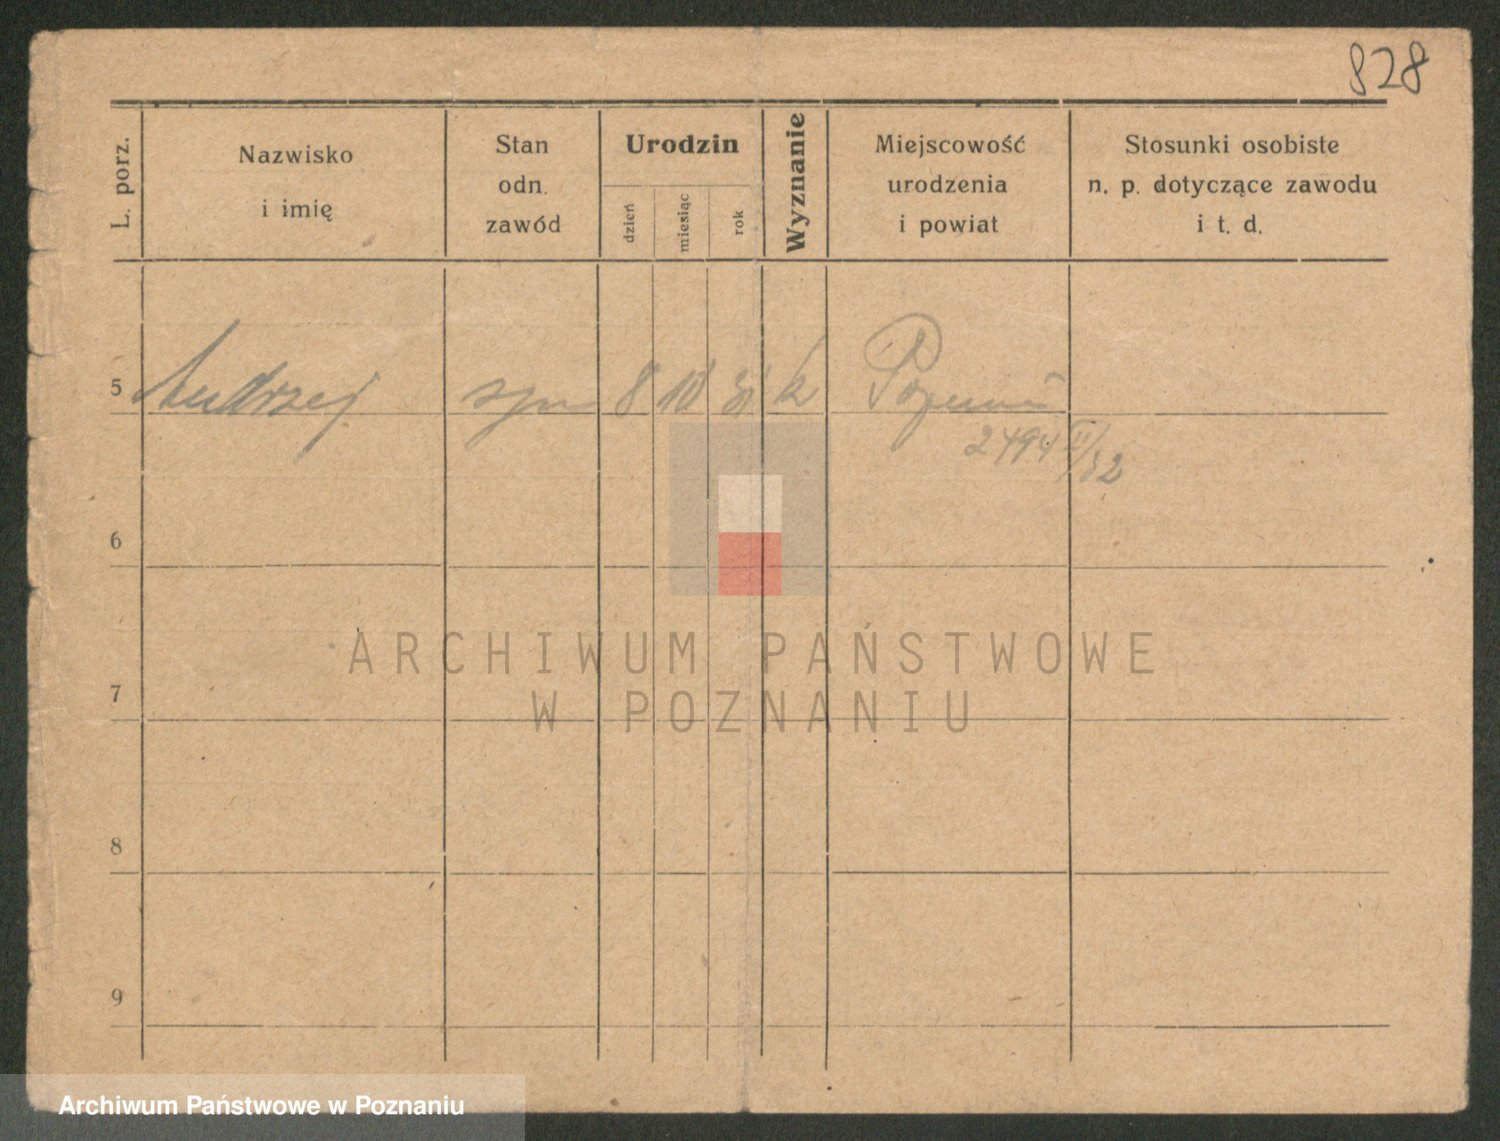 828
L. porz.
Nazwisko
i imię
Stan
odn.
zawód
Urodzin
dzień
miesiąc
rok
Wyznanie
Miejscowość
urodzenia
i powiat
Stosunki osobiste
n. p. dotyczące zawodu
i t. d.
5 Andrzej syn 8 10 31 k Poznań
2494 II/32
6
7
8
9
ARCHIWUM PAŃSTWOWE
W POZNANIU
Archiwum Państwowe w Poznaniu